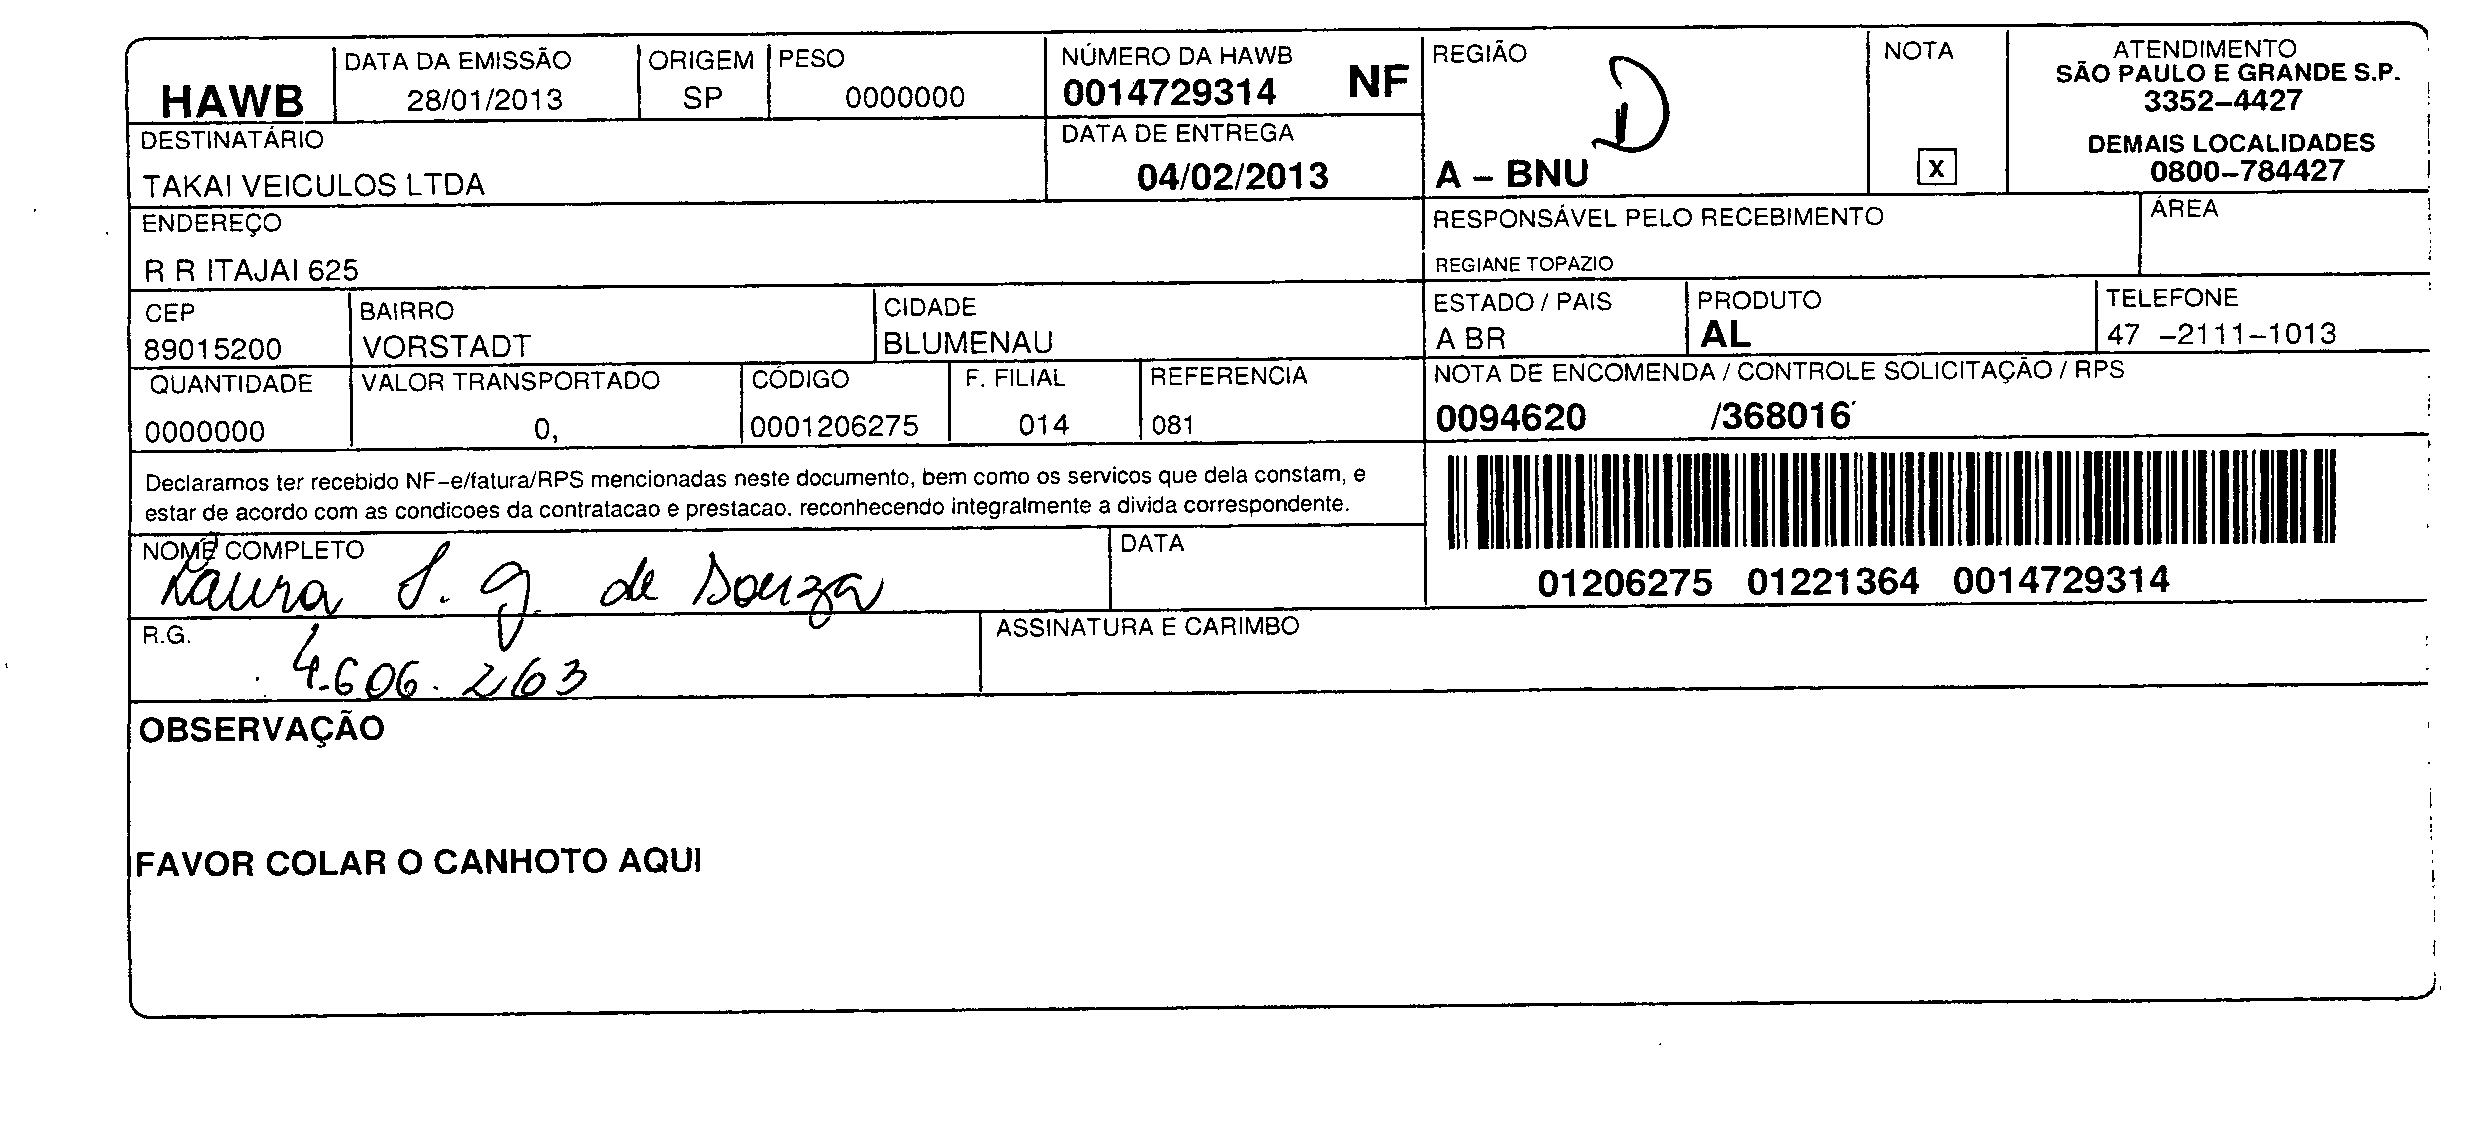 HAWB
DATA DA EMISSÃO
28/01/2013
ORIGEM
SP
PESO
0000000
NÚMERO DA HAWB
0014729314 NF
REGIÃO
D
A – BNU
NOTA
X
ATENDIMENTO
SÃO PAULO E GRANDE S.P.
3352–4427
DEMAIS LOCALIDADES
0800–784427
DESTINATÁRIO
TAKAI VEICULOS LTDA
DATA DE ENTREGA
04/02/2013
ENDEREÇO
R R ITAJAI 625
RESPONSÁVEL PELO RECEBIMENTO
REGIANE TOPAZIO
ÁREA
CEP
89015200
BAIRRO
VORSTADT
CIDADE
BLUMENAU
ESTADO / PAIS
A BR
PRODUTO
AL
TELEFONE
47 –2111–1013
QUANTIDADE
0000000
VALOR TRANSPORTADO
0,
CÓDIGO
0001206275
F. FILIAL
014
REFERENCIA
081
NOTA DE ENCOMENDA / CONTROLE SOLICITAÇÃO / RPS
0094620 /368016
Declaramos ter recebido NF–e/fatura/RPS mencionadas neste documento, bem como os servicos que dela constam, e
estar de acordo com as condicoes da contratacao e prestacao. reconhecendo integralmente a divida correspondente.
01206275 01221364 0014729314
NOME COMPLETO
Laura S. g. de Souza
DATA
R.G.
4.606.263
ASSINATURA E CARIMBO
OBSERVAÇÃO
FAVOR COLAR O CANHOTO AQUI